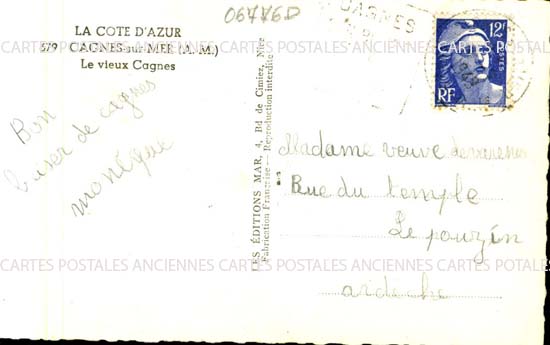 06776D
LA COTE D'AZUR
579 CAGNES-sur-MER (A. M.)
Le vieux Cagnes
CAGNES
12F
RF
Bon
baiser de cagnes
monique
LES ÉDITIONS MAR, 4, Bd de Cimiez, Nice
Fabrication Française - Reproduction interdite
Madame veuve
Rue du temple
Le pouzin
ardeche
CARTES POSTALES ANCIENNES CARTES POSTALES ANCIENNES CARTES POSTALES
CARTES POSTALES ANCIENNES CARTES POSTALES ANCIENNES CARTES POTALES